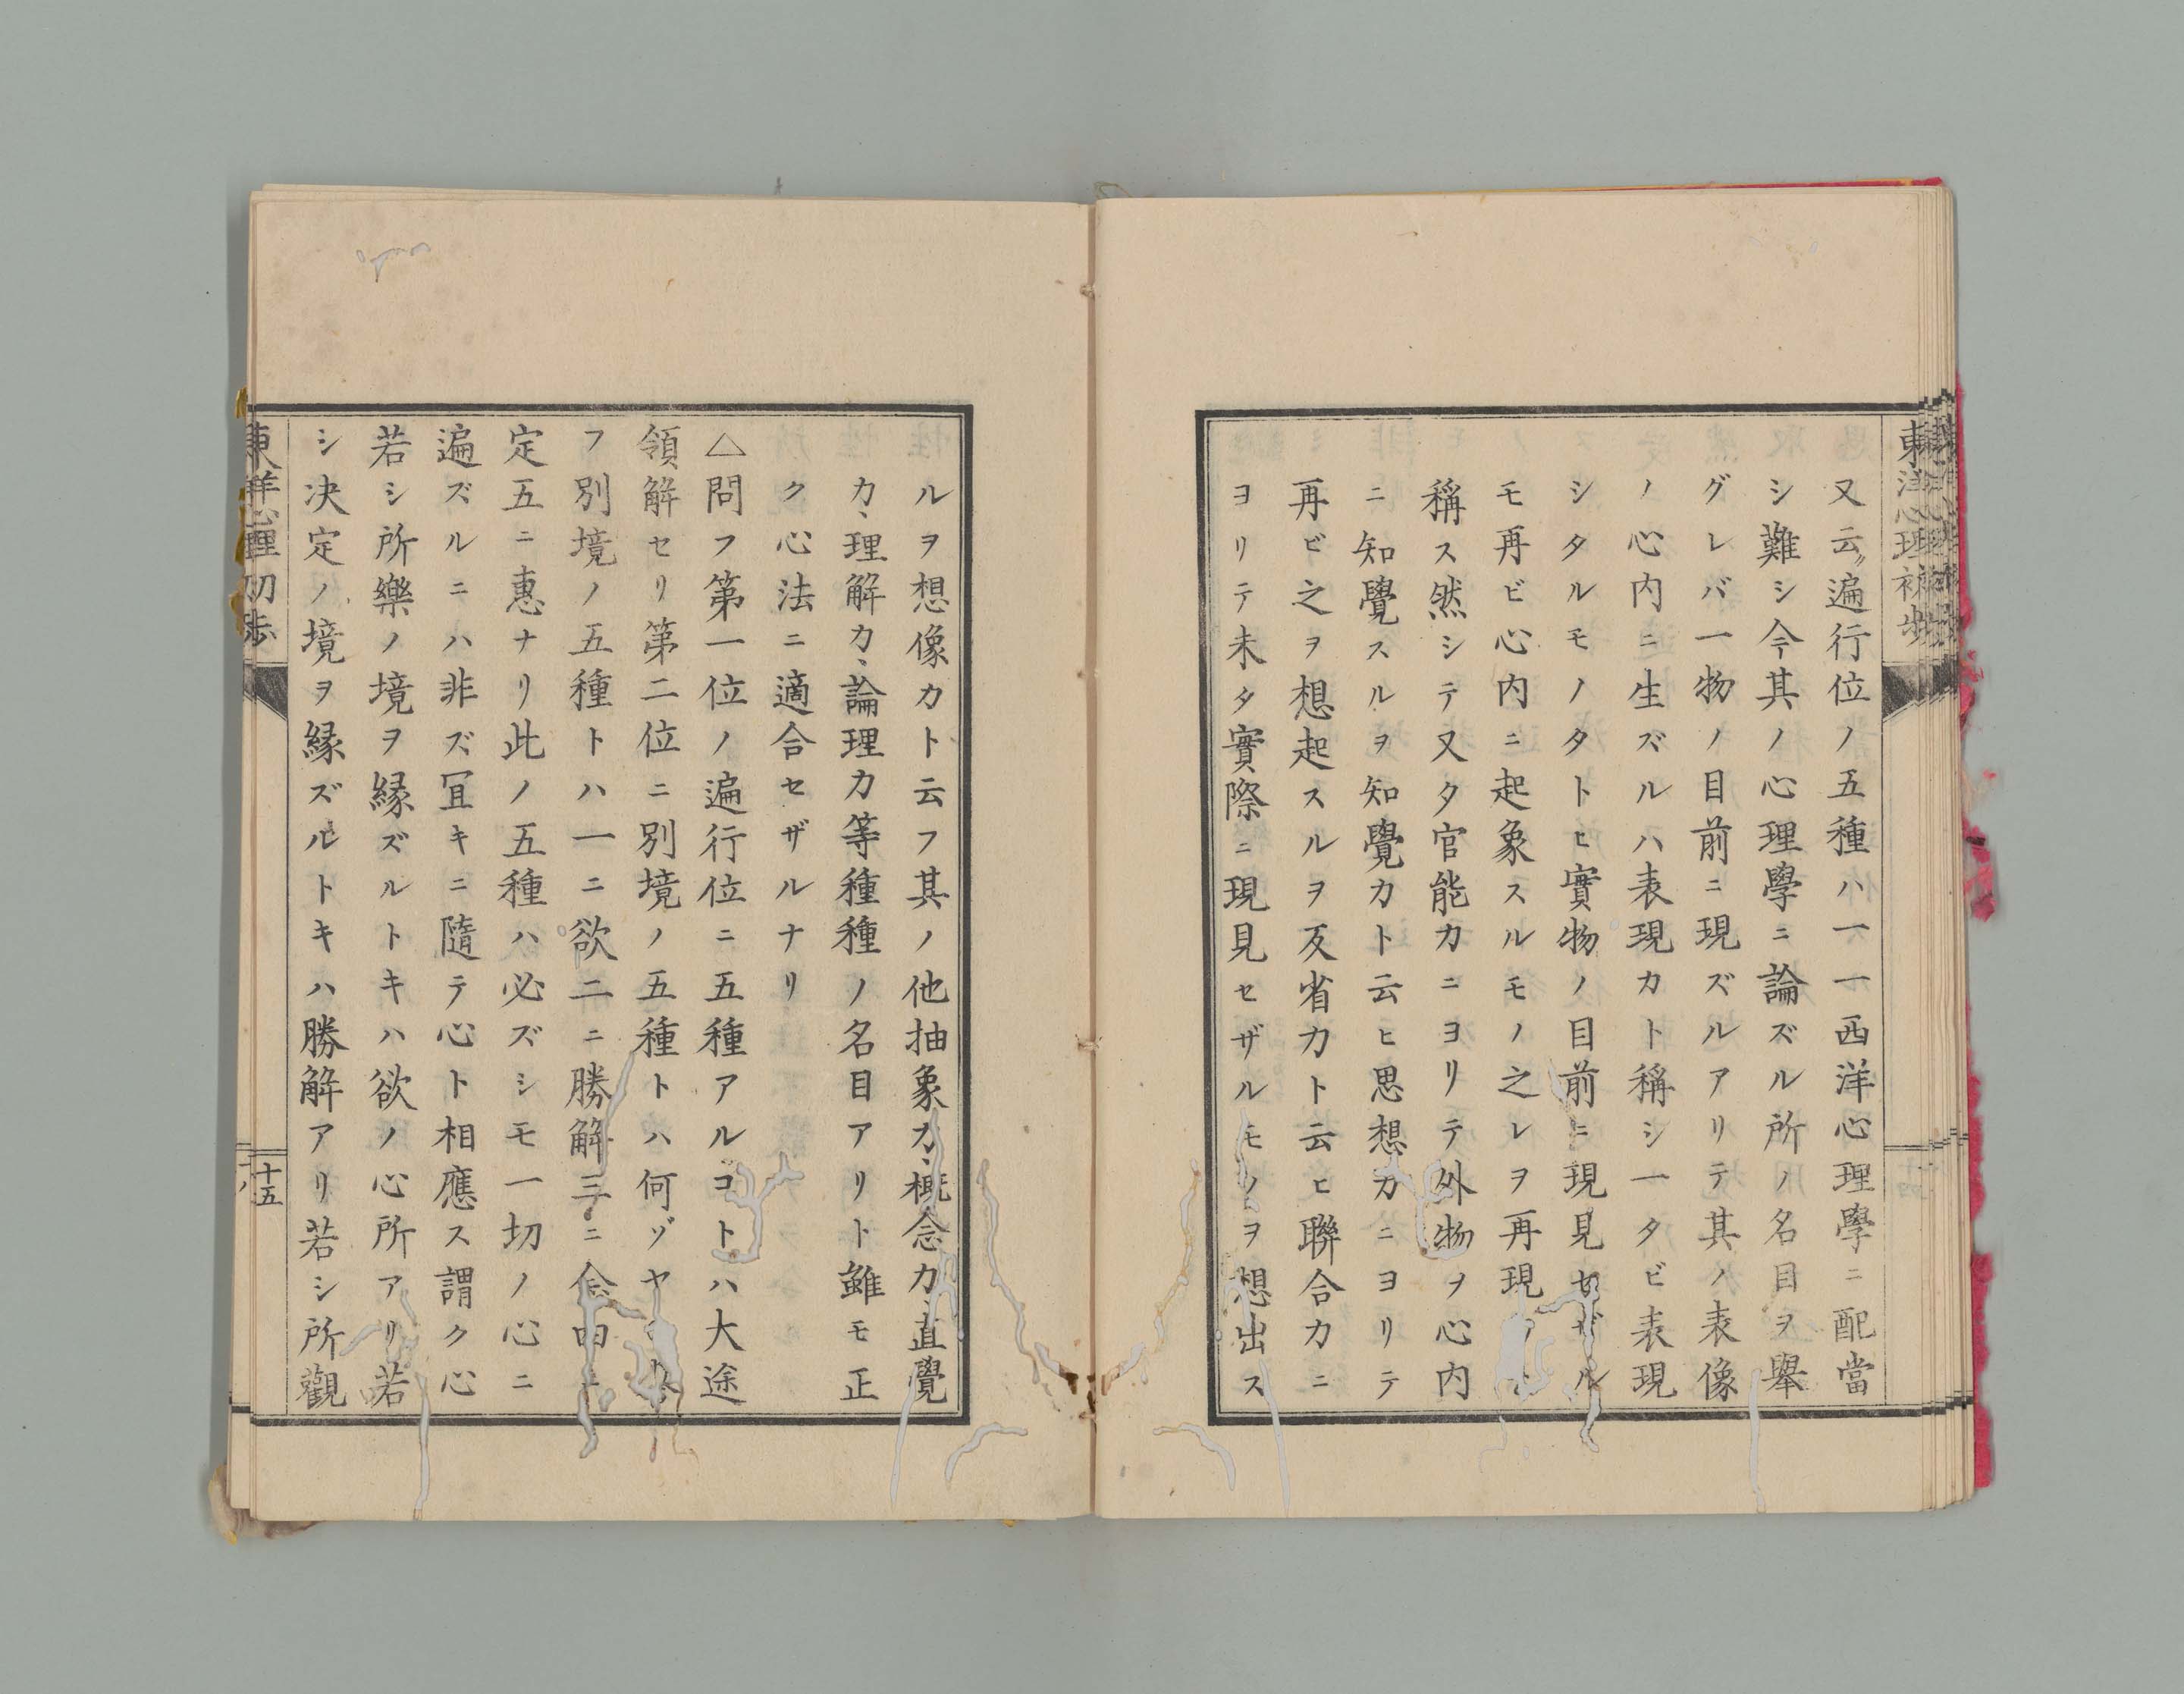 東洋心理初步
又云、遍行位ノ五種ハ一一西洋心理學ニ配當
シ難シ今其ノ心理學ニ論ズル所ノ名目ヲ擧
グレバ一物ノ目前ニ現ズルアリテ其ノ表像
ノ心内ニ生ズルハ表現力ト稱シ一タビ表現
シタルモノタトヒ實物ノ目前ニ現見セザル
モ再ビ心内ニ起象スルモノ之レヲ再現
稱ス然シテ又タ官能力ニヨリテ外物ヲ心内
ニ知覺スルヲ知覺力ト云ヒ思想力ニヨリテ
再ビ之ヲ想起スルヲ反省力ト云ヒ聯合力ニ
ヨリテ未タ實際ニ現見セザルモノヲ想出ス
ルヲ想像力ト云フ其ノ他抽象力、概念力、直覺
力、理解力、論理力等種種ノ名目アリト雖モ正
ク心法ニ適合セザルナリ
△問フ第一位ノ遍行位ニ五種アルコトハ大途
領解セリ第二位ニ別境ノ五種トハ何ゾヤ
フ別境ノ五種トハ一ニ欲二ニ勝解三ニ念四ニ
定五ニ惠ナリ此ノ五種ハ必ズシモ一切ノ心ニ
遍ズルニハ非ズ冝キニ隨テ心ト相應ス謂ク心
若シ所樂ノ境ヲ縁ズルトキハ欲ノ心所アリ若
シ决定ノ境ヲ縁ズルトキハ勝解アリ若シ所觀
東洋心理初步
十五